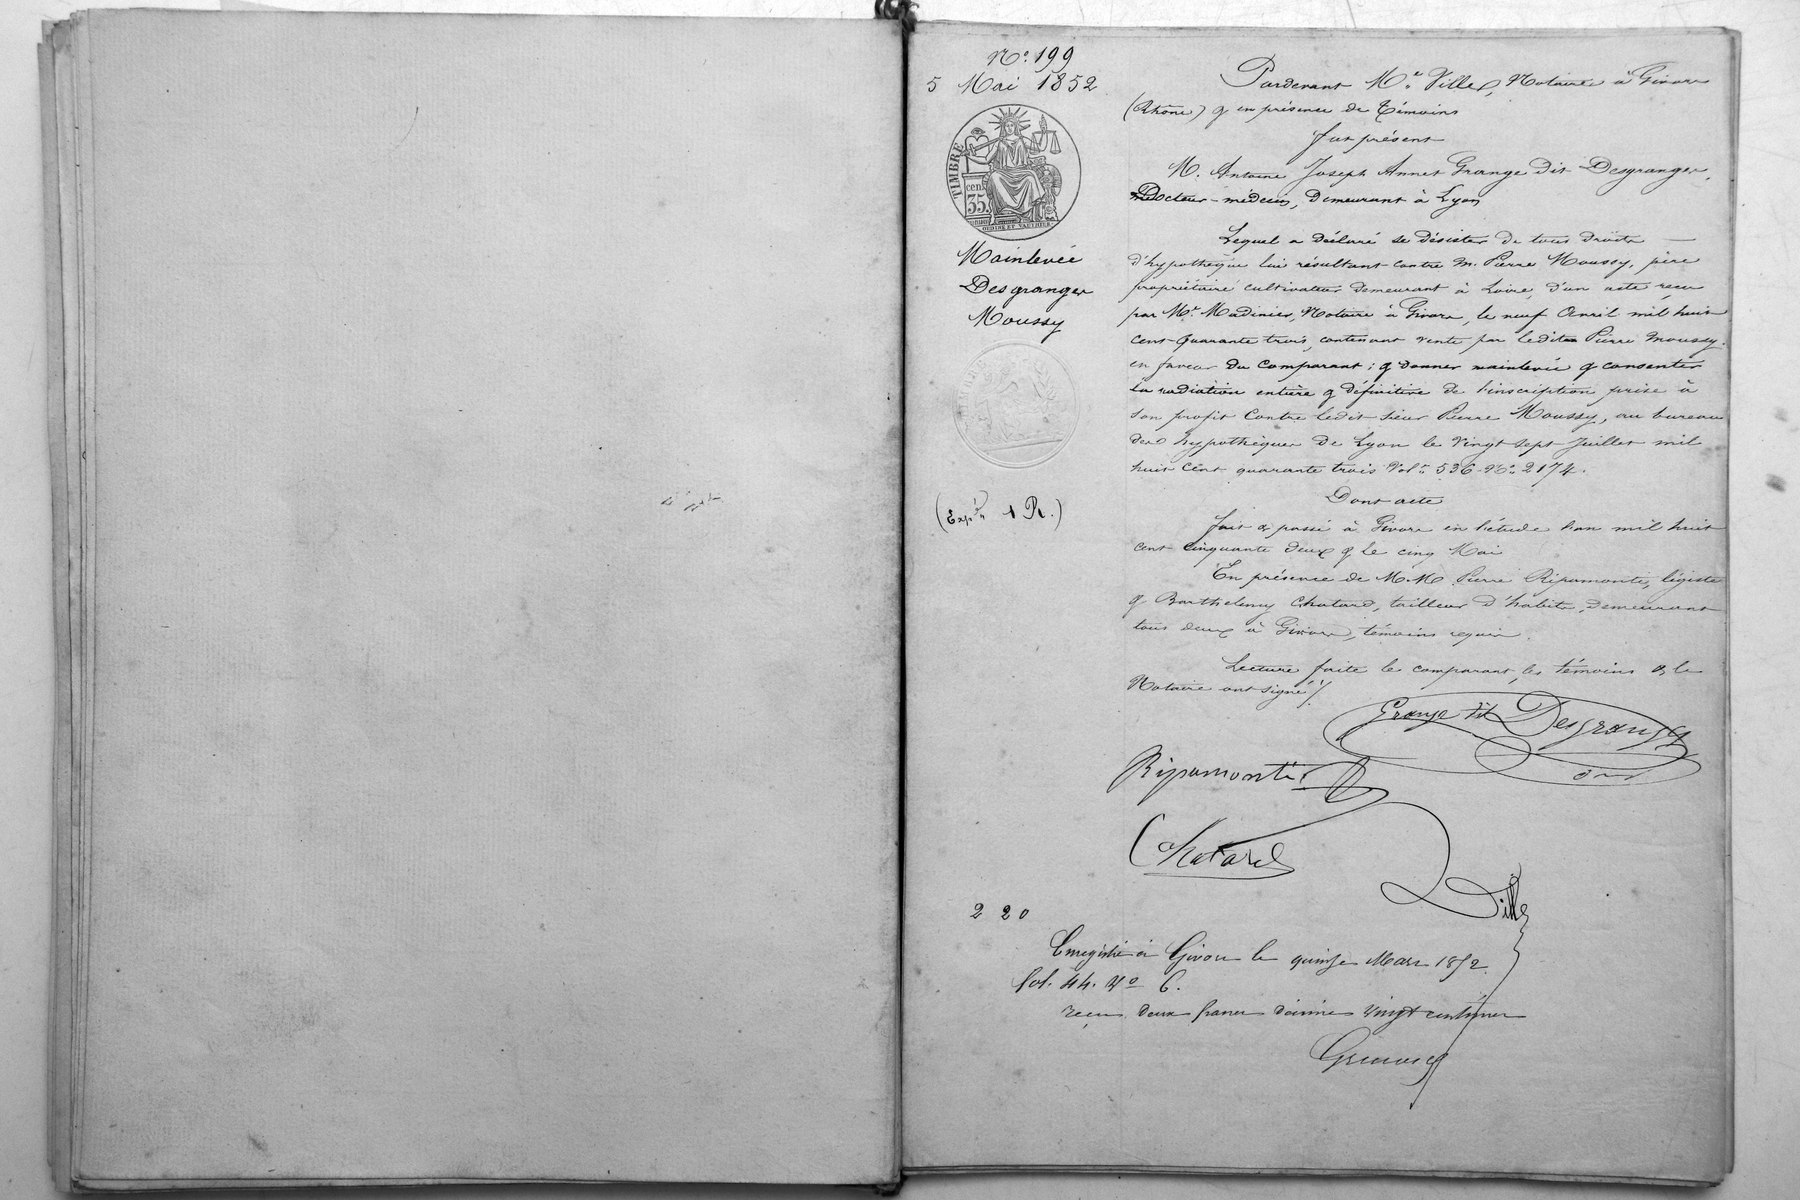 N.° 199
5 Mai 1852
TIMBRE
cent
35.
OUDINÉ ET VAUTHIER
Mainlevée
Desgranges
Moussy
(Exp.ée 1 R.)
Pardevant M.e Villes, Notaire à Givors
(Rhône) & en présence de Témoins
fut présent
M. Antoine Joseph Annet Grange dit Desgranges,
Docteur-médecin, demeurant à Lyon
Lequel a déclaré se désister de tous droits
d'hypothèque lui résultant contre M. Pierre Moussy, père
propriétaire cultivateur demeurant à Loire, d'un acte reçu
par M.e Madinier, Notaire à Givors, le neuf Avril mil huit
cent quarante trois, contenant vente par ledit Pierre Moussy
en faveur du comparant; & donner mainlevée & consentir
la radiation entière & définitive de l'inscription prise à
son profit contre ledit sieur Pierre Moussy, au bureau
des hypothèques de Lyon le vingt sept Juillet mil
huit cent quarante trois Vol. 536 N.° 2174.
Dont acte
fait & passé à Givors en l'étude l'an mil huit
cent cinquante deux & le cinq Mai
En présence de M.M. Pierre Ripamonti, légiste
& Barthelemy Chatard, tailleur d'habits, demeurant
tous deux à Givors, témoins requis.
Lecture faite le comparant, les témoins & le
Notaire ont signé /.
Grange dit Desgranges
Ripamonti
Chatard
Ville
2 20
Enregistré à Givors le quinze Mars 1852
fol. 44. V° C.
reçu deux francs décime vingt centimes